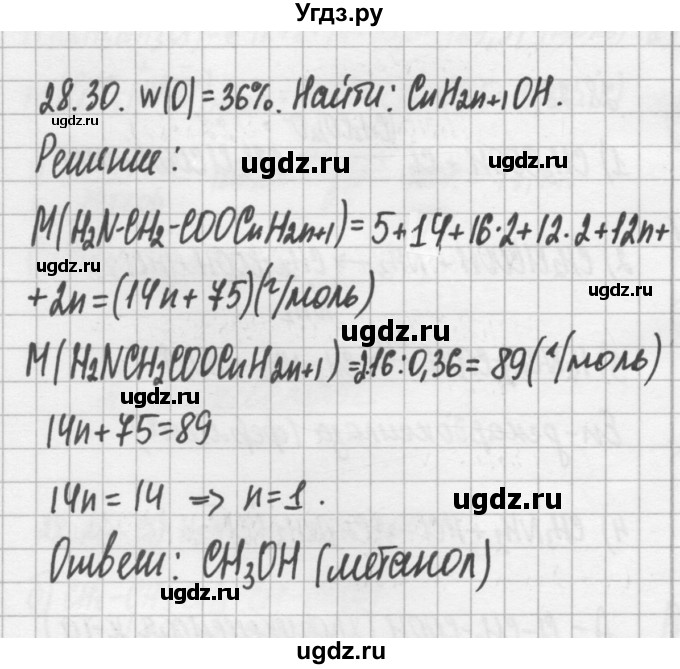 Угдз.ру
28.30. w(O)=36%. Найти: CnH2n+1OH.
ugdz.ru
Решение:
ugdz.ru
ugdz.ru
M(H2N-CH2-COOCnH2n+1)=5+14+16·2+12·2+12n+
ugdz.ru
+2n=(14n+75)(г/моль)
ugdz.ru
ugdz.ru
M(H2NCH2COOCnH2n+1)=2·16:0,36=89(г/моль)
ugdz.ru
14n+75=89
ugdz.ru
14n=14 => n=1.
ugdz.ru
Ответ: CH3OH (метанол)
ugdz.ru
ugdz.ru